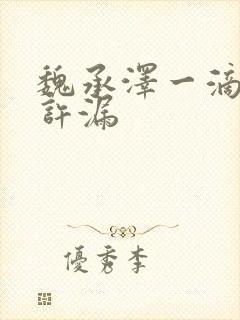 魏承澤一滴
許漏
優秀李